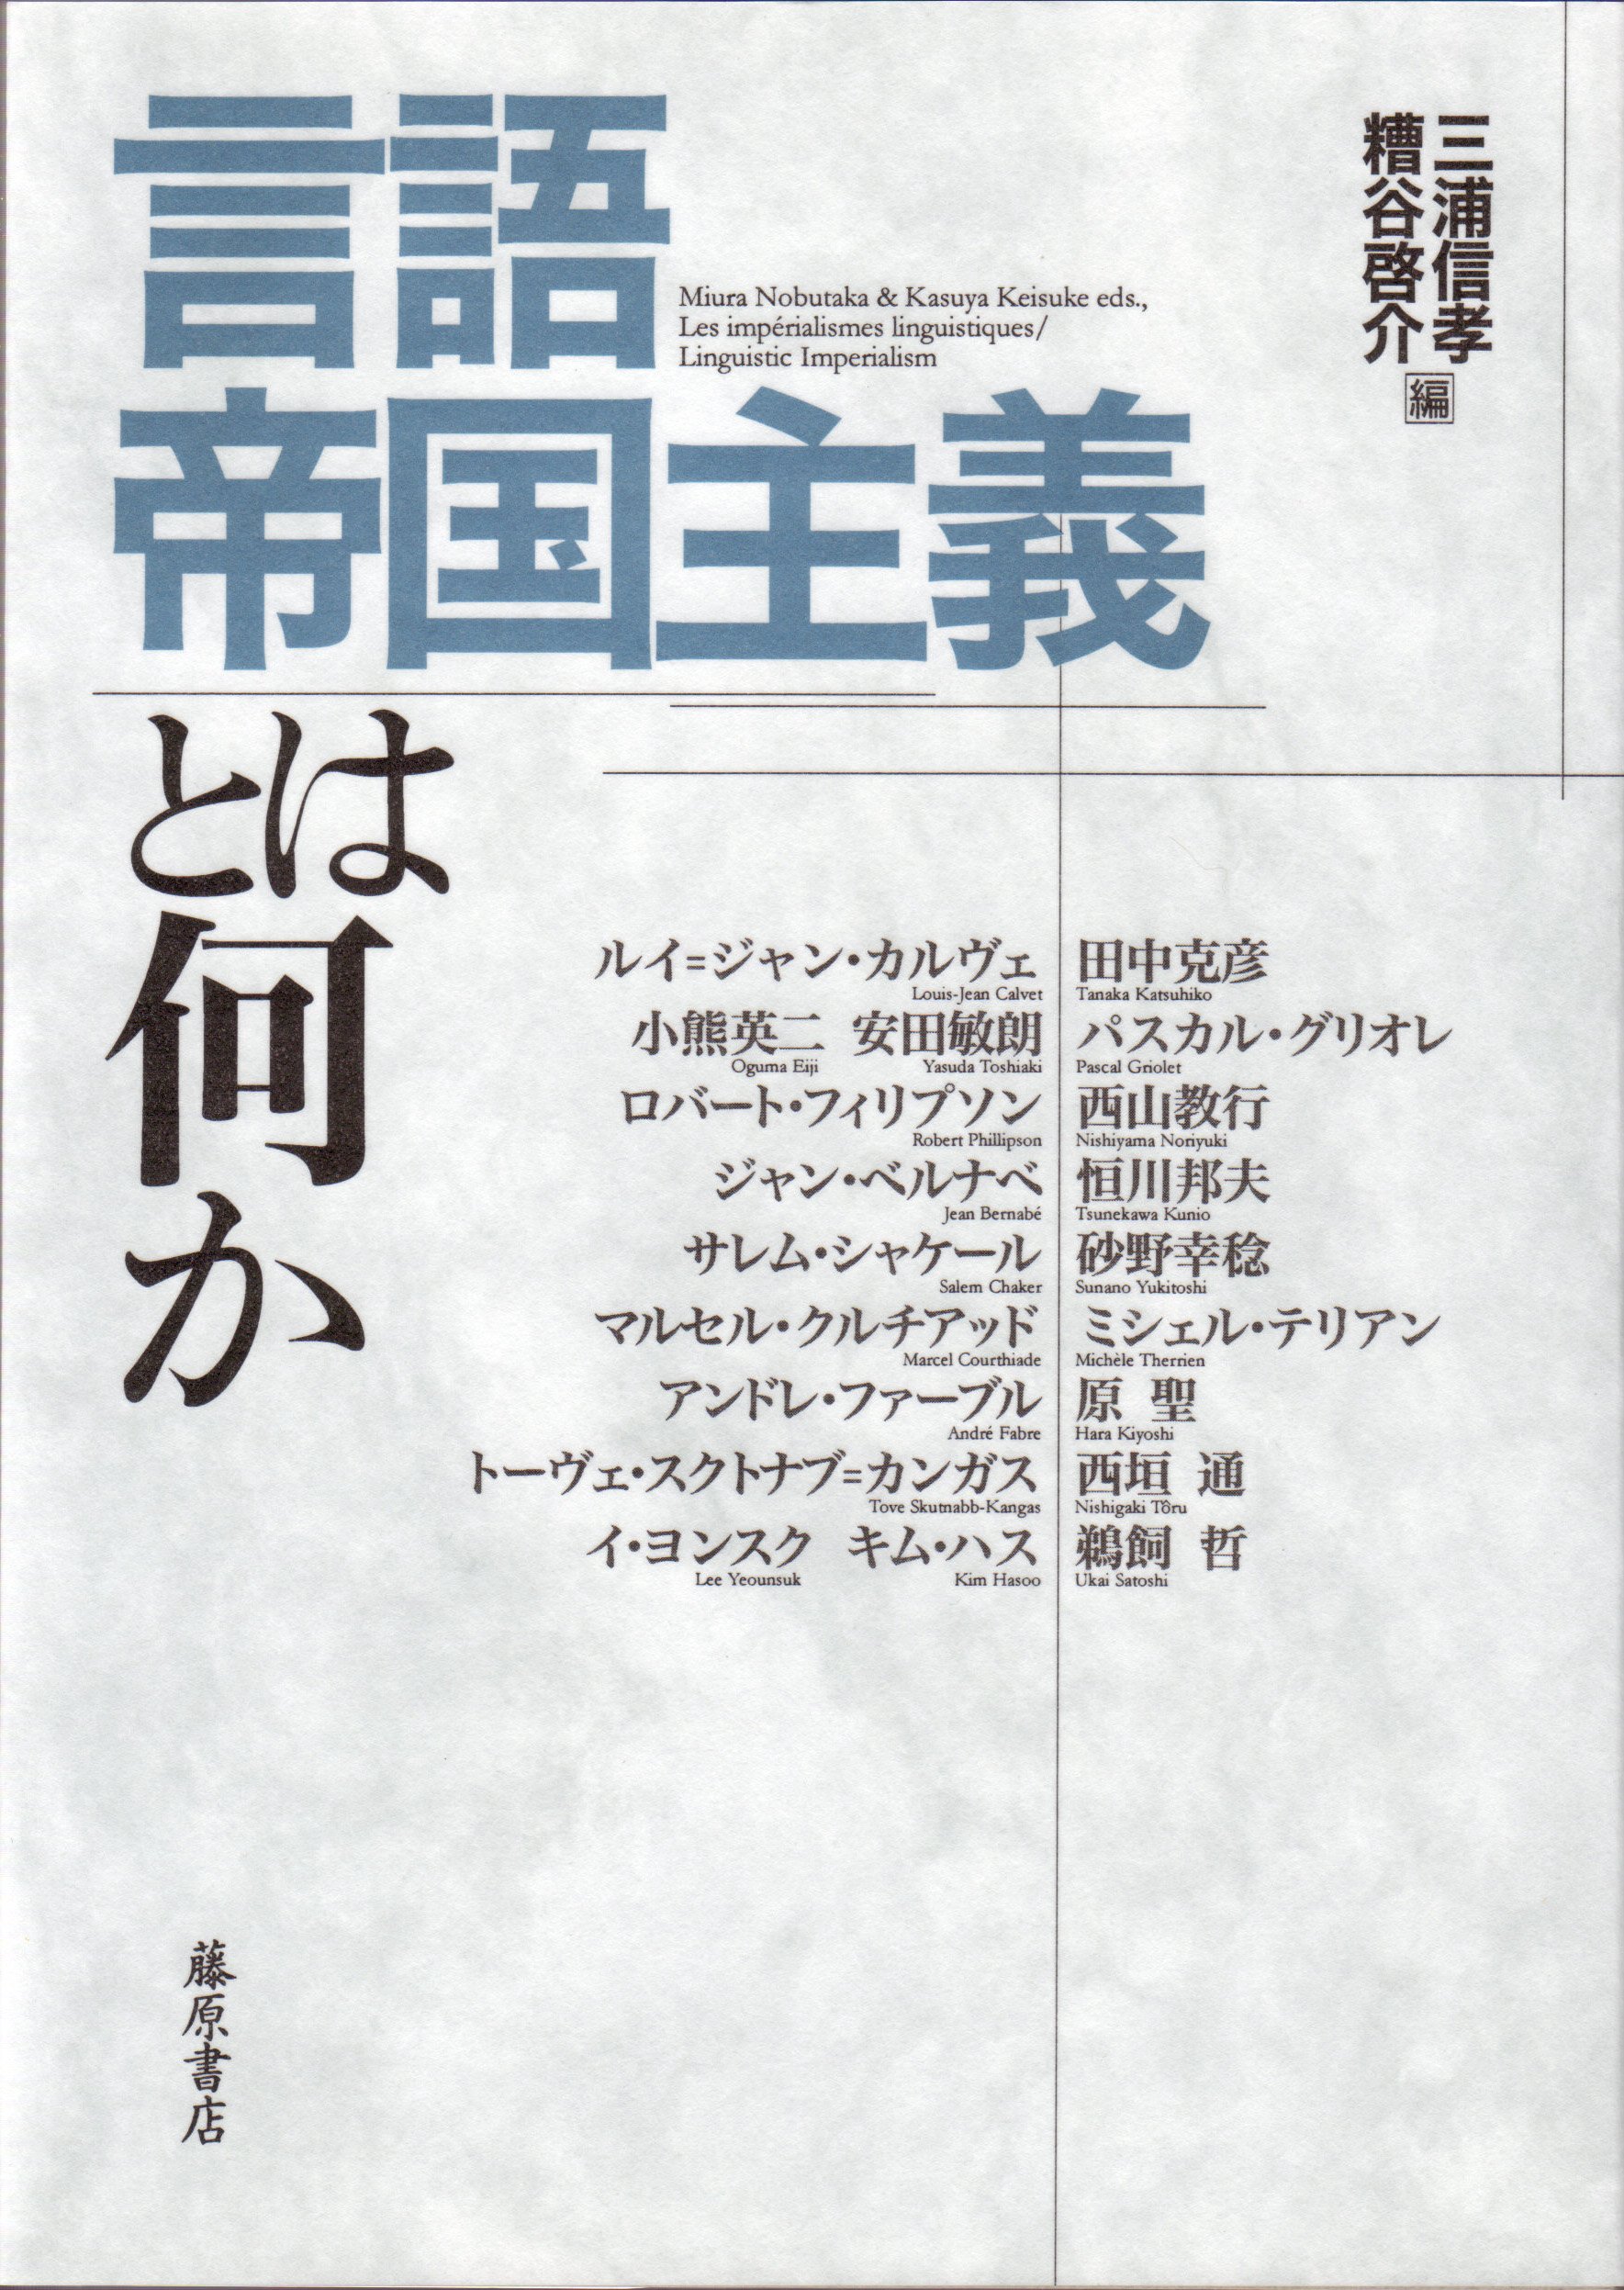 言語
Miura Nobutaka & Kasuya Keisuke eds.,
Les impérialismes linguistiques/
Linguistic Imperialism
帝国主義
とは
何
か
三浦信孝
糟谷啓介
編
ルイ=ジャン・カルヴェ 田中克彦
Louis-Jean Calvet Tanaka Katsuhiko
小熊英二 安田敏朗 パスカル・グリオレ
Oguma Eiji Yasuda Toshiaki Pascal Griolet
ロバート・フィリプソン 西山教行
Robert Phillipson Nishiyama Noriyuki
ジャン・ベルナベ 恒川邦夫
Jean Bernabé Tsunekawa Kunio
サレム・シャケール 砂野幸稔
Salem Chaker Sunano Yukitoshi
マルセル・クルチアッド ミシェル・テリアン
Marcel Courthiade Michèle Therrien
アンドレ・ファーブル 原 聖
André Fabre Hara Kiyoshi
トーヴェ・スクトナブ=カンガス 西垣 通
Tove Skutnabb-Kangas Nishigaki Tôru
イ・ヨンスク キム・ハス 鵜飼 哲
Lee Yeounsuk Kim Hasoo Ukai Satoshi
藤原書店